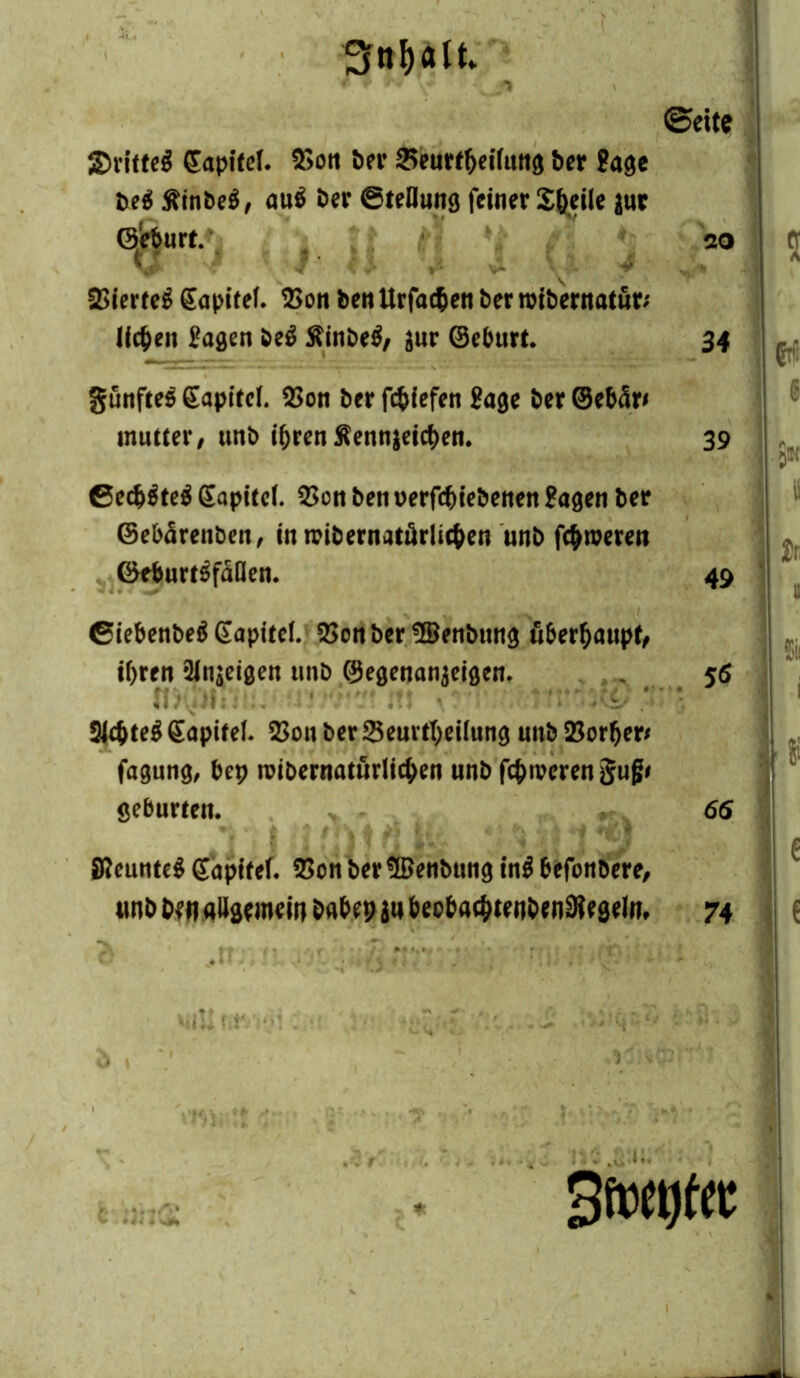 Inhalt.
Seite
Drittes Capitel. Von der Beurtheilung der Lage
des Kindes, aus der Stellung seiner Theile zur
Geburt. 20
Viertes Capitel. Von den Ursachen der widernatür-
lichen Lagen des Kindes, zur Geburt. 34
Fünftes Capitel. Von der schiefen Lage der Gebär-
mutter, und ihren Kennzeichen. 39
Sechstes Capitel. Von den verschiedenen Lagen der
Gebärenden, in widernatürlichen und schweren
Geburtsfällen. 49
Siebendes Capitel. Von der Wendung überhaupt,
ihren Anzeigen und Gegenanzeigen. 56
Achtes Capitel. Von der Beurtheilung und Vorher-
sagung, bey widernatürlichen und schweren Fuß-
geburten. 66
Neuntes Capitel. Von der Wendung ins besondere,
und den allgemein dabey zu beobachtenden Regeln. 74
Zweyter